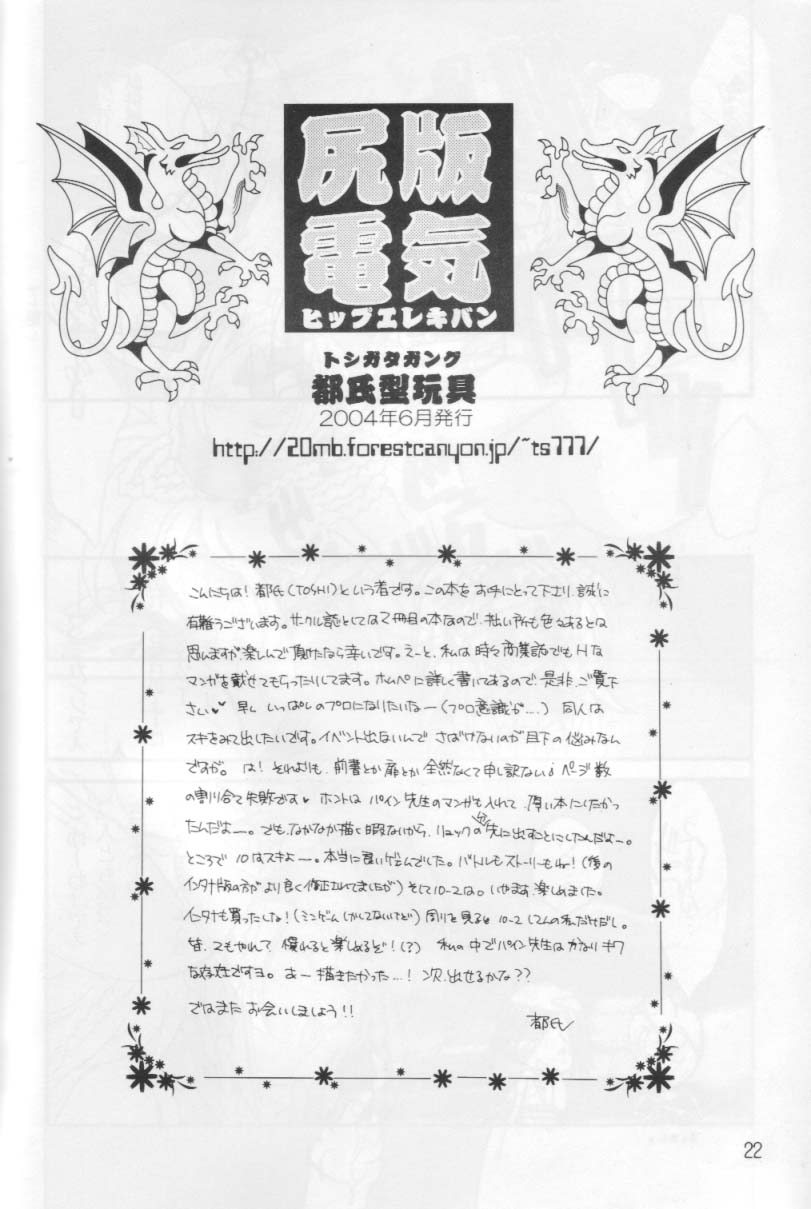 尻版
電気
ヒップエレキバン
トシガタガング
都氏型玩具
2004年6月発行
http://20mb.forestcanyon.jp/~ts777/
こんにちは！都氏(TOSHI)という者です。この本をお手にとって下さり、誠に
有難うございます。サークル誌としては2冊目の本なので、拙い所も色々あるとは
思いますが楽しんで頂けたなら幸いです。えーと、私は時々商業誌でもHな
マンガを載せてもらったりしてます。ホムペに詳しく書いてあるので、是非、ご覧下
さい♥♥ 早く いっぱしのプロになりたいなー(プロ意識が....) 同人は
スキをみて出したいです。イベント出ないんで さばけないのが目下の悩みなん
ですが。は！それよりも、前書とか扉とか全然なくて申し訳ない♪ ページ数
の割り合て失敗です♥ ホントは パイン先生のマンガも入れて、厚い本にしたかっ
たんだよー。でも、なかなか描く暇ないから、リュックの先に出すことにしたんだよー。
ところで 10はスキよー。本当に良いゲームでした。バトルもストーリーも！(後の
インタナ版の方がより良く修正されてましたが) そして10-2は。いやます、楽しめました。
インタナも買ったしな！(ミニゲームしかしてないけど) 周りを見ると 10-2 してんの私だけだし。
皆、 慣れると楽しめるぞ！(？) 私の中でパイン先生はかなりキワ
な存在ですヨ。あー描きたかった...！次、出せるかな？？
ではまた お会いしましょう！！
都氏
22